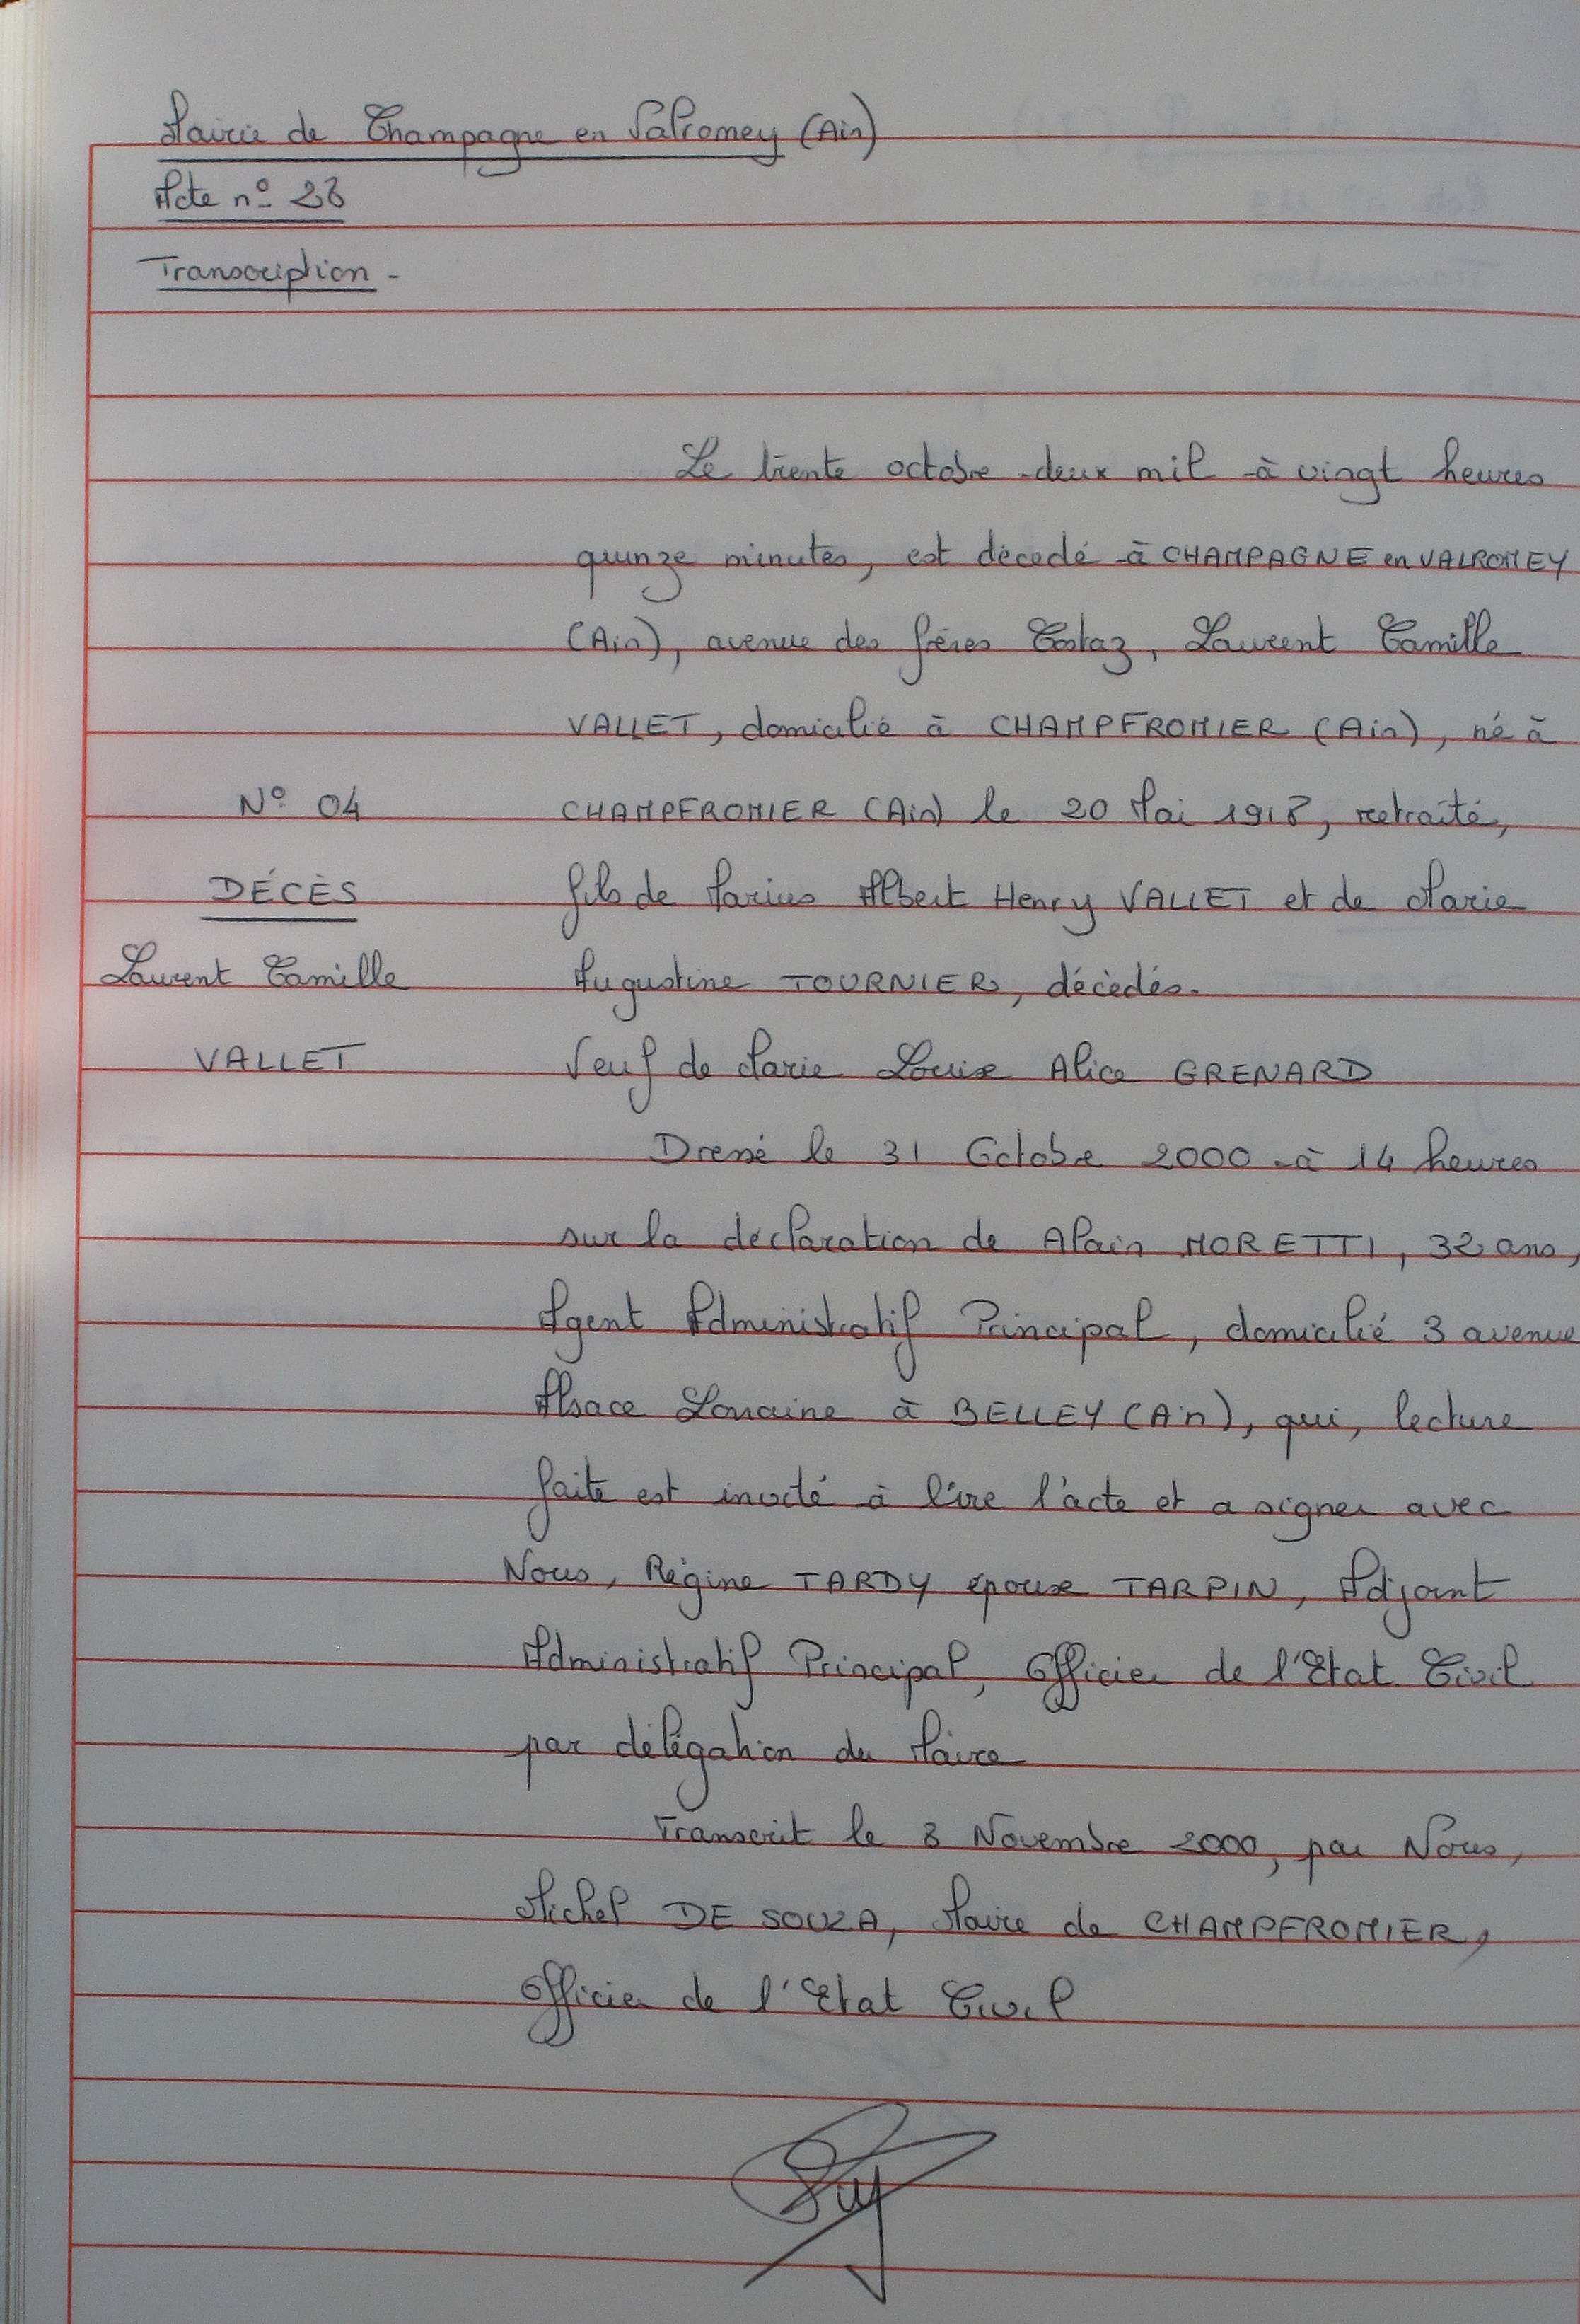 Mairie de Champagne en Valromey (Ain)
Acte n° 28
Transcription -
Le trente octobre deux mil à vingt heures
quinze minutes, est décédé à CHAMPAGNE en VALROMEY
(Ain), avenue des frères Costaz, Laurent Camille
VALLET, domicilié à CHAMPFROMIER (Ain), né à
N° 04
CHAMPFROMIER (Ain) le 20 Mai 1918, retraité,
DÉCÈS
fils de Marius Albert Henry VALLET et de Marie
Laurent Camille
Augustine TOURNIER, décédés.
VALLET
Veuf de Marie Louise Alice GRENARD
Dressé le 31 Octobre 2000 à 14 heures
sur la déclaration de Alain MORETTI, 32 ans,
Agent Administratif Principal, domicilié 3 avenue
Alsace Lorraine à BELLEY (Ain), qui, lecture
faite est invité à lire l'acte et a signer avec
Nous, Régine TARDY épouse TARPIN, Adjoint
Administratif Principal, Officier de l'Etat Civil
par délégation du Maire
Transcrit le 8 Novembre 2000, par Nous,
Michel DE SOUZA, Maire de CHAMPFROMIER,
Officier de l'Etat Civil